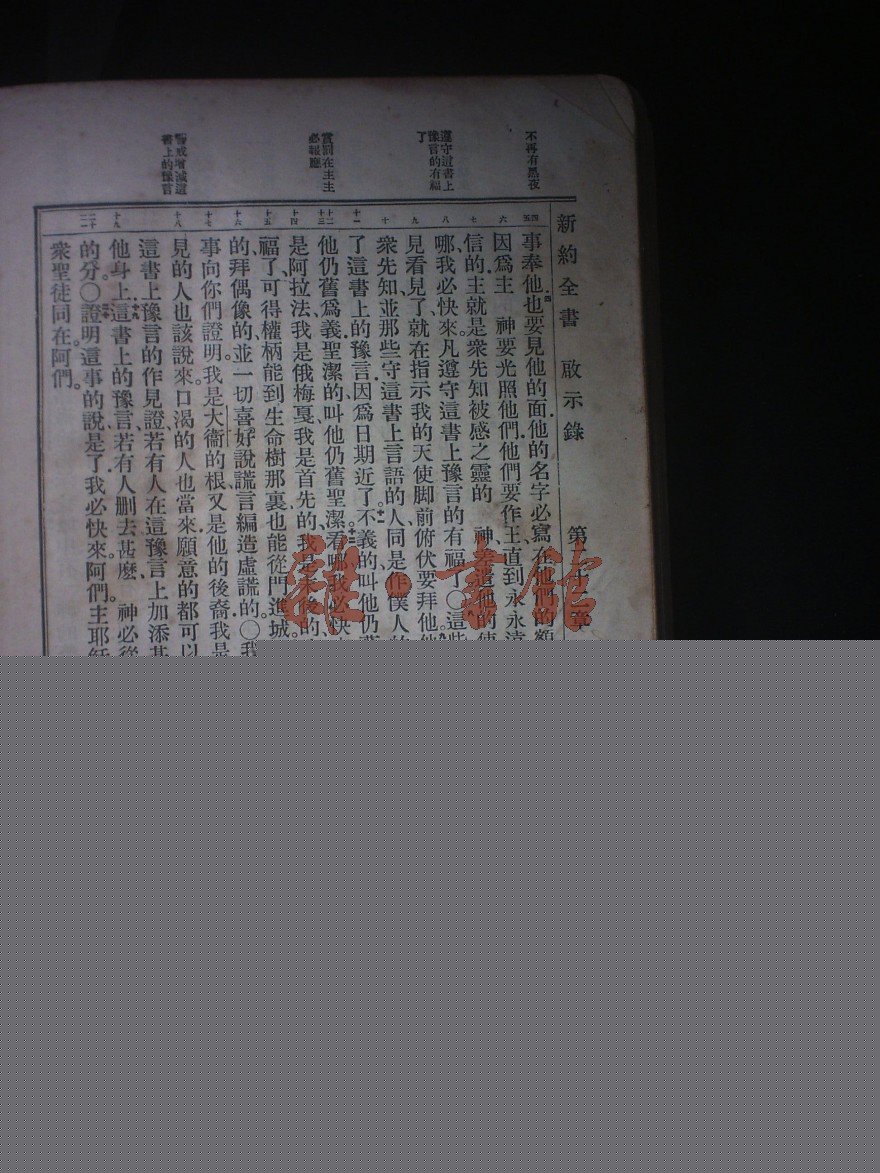 新約全書 啟示錄 第廿二章
不再有黑夜
遵守這書上
豫言的有福
了
賞罰在主主
必報應
警戒增減這
書上的豫言
四 五
六
七
八
九
十
十一
十二 十三
十四
十五
十六
十七
十八
十九
二十 二一
事奉他、也要見他的面、他的名字必寫在他們的額
因爲主 神要光照他們、他們要作王、直到永永遠
信的、主就是衆先知被感之靈的 神、差遣他的使
哪、我必快來、凡遵守這書上豫言的有福了。〇這些
見看見了、就在指示我的天使脚前俯伏要拜他、他
衆先知、並那些守這書上言語的人、同是作僕人的
了這書上的豫言、因爲日期近了。不義的、叫他仍舊
他仍舊爲義、聖潔的、叫他仍舊聖潔。看哪、我必快
是阿拉法、我是俄梅戛、我是首先的、我是末後的
福了、可得權柄能到生命樹那裏、也能從門進城。
的、拜偶像的、並一切喜好說謊言編造虛謊的。〇我
事向你們證明。我是大衞的根、又是他的後裔、我是
見的人也該說來、口渴的人也當來、願意的都可以
這書上豫言的作見證、若有人在這豫言上加添甚
他身上、這書上的豫言、若有人刪去甚麼 神必從
的分。〇證明這事的說、是了、我必快來、阿們。主耶穌
衆聖徒同在、阿們。
雜·書館